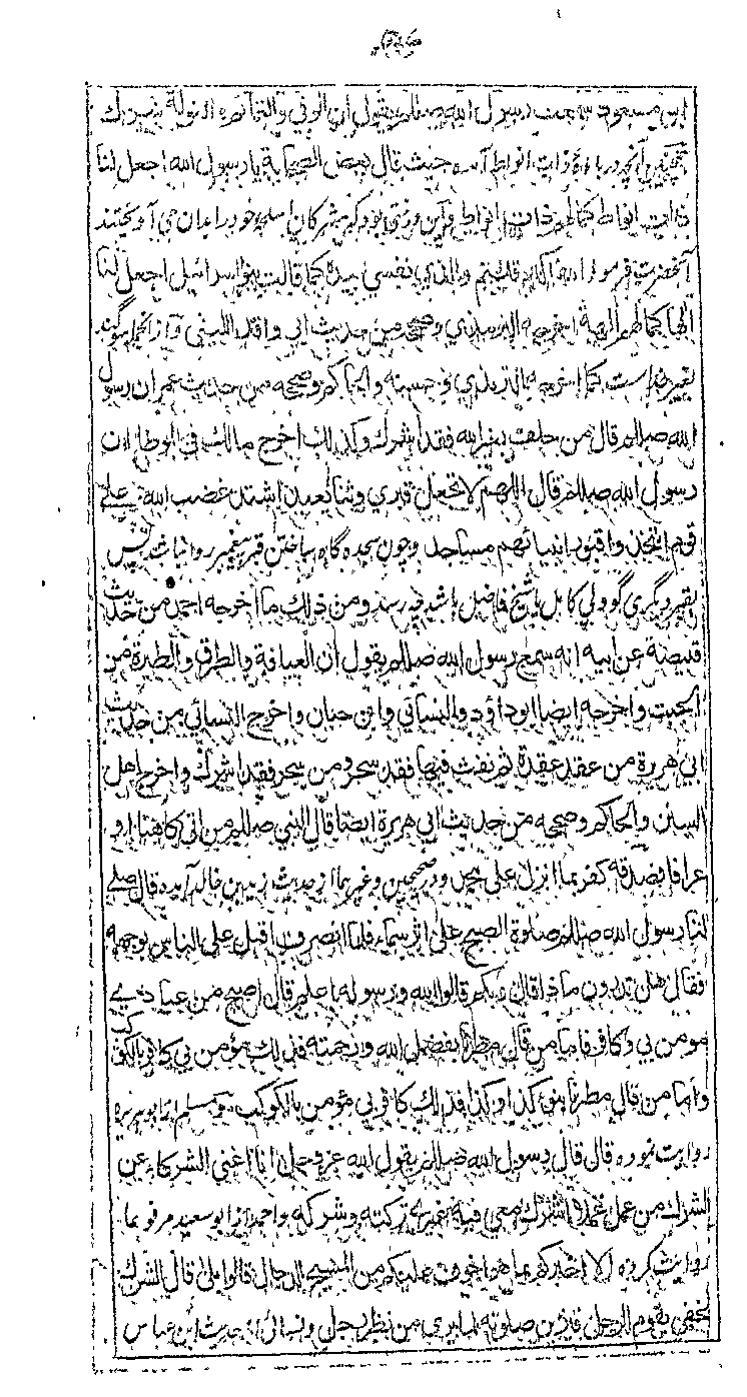 ابن مسعود سمعت رسول الله صللم يقول ان الرقى والتمائم والتولة شرك
همچنین آنچه درباره ذات انواط آمده حیث قال بعض الصحابة یا رسول الله اجعل لنا
ذات انواط كما لهم ذات انواط وآن درختی بود که مشرکان اسلحه خود را بدان می آویختند
آنحضرت فرمود الله اكبر قلتم والذي نفسي بيده كما قالت بنو اسرائيل اجعل لنا
الها كما لهم الهة اخرجه الترمذي وصححه من حديث ابي واقد الليثي و از آنجمله سوگند
بغیر خداست كما اخرجه الترمذي وحسنه والحاكم وصححه من حديث عمر ان رسول
الله صللم قال من حلف بغير الله فقد اشرك وكذلك اخرج مالك في الموطا ان
رسول الله صللم قال اللهم لا تجعل قبري وثنا يعبد اشتد غضب الله على
قوم اتخذوا قبور انبيائهم مساجد وچون سجده گاه ساختن قبر پیغمبر روا نباشد پس
بقبر دیگری گو ولی کامل یا شیخ فاضل باشد چه رسد ومن ذلك ما اخرجه احمد من حديث
قبيصة عن ابيه انه سمع رسول الله صللم يقول ان العيافة والطرق والطيرة من
الجبت واخرجه ايضا ابو داؤد والنسائي وابن حبان واخرج النسائي من حديث
ابي هريرة من عقد عقدة ثم نفث فيها فقد سحر ومن سحر فقد اشرك واخرج اهل
السنن والحاكم وصححه من حديث ابي هريرة ايضا قال النبي صللم من اتى كاهنا او
عرافا فصدقه كفر بما انزل على محمد ودر صحیحین وغیرهما از حدیث زید بن خالد آمده قال صلى
لنا رسول الله صللم صلوة الصبح على اثر سماء فلما انصرف اقبل على الناس بوجهه
فقال هل تدرون ماذا قال ربكم قالوا الله ورسوله اعلم قال اصبح من عبادي
مومن بي وكافر فاما من قال مطرنا بفضل الله ورحمته فذلك مؤمن بي كافر بالكوكب
واما من قال مطرنا بنوء كذا وكذا فذلك كافر بي مؤمن بالكوكب ومسلم از ابوهریره
روایت نموده قال قال رسول الله صللم يقول الله عز وجل انا اغنى الشركاء عن
الشرك من عمل عملا اشرك معي فيه غيري تركته وشركه واحمد از ابو سعید مرفوعا
روایت کرده الا اخبركم بما هو اخوف عليكم من المسيح الدجال قالوا بلى قال الشرك
الخفي يقوم الرجل فيزين صلوته لما يرى من نظر رجل حديث ابن عباس